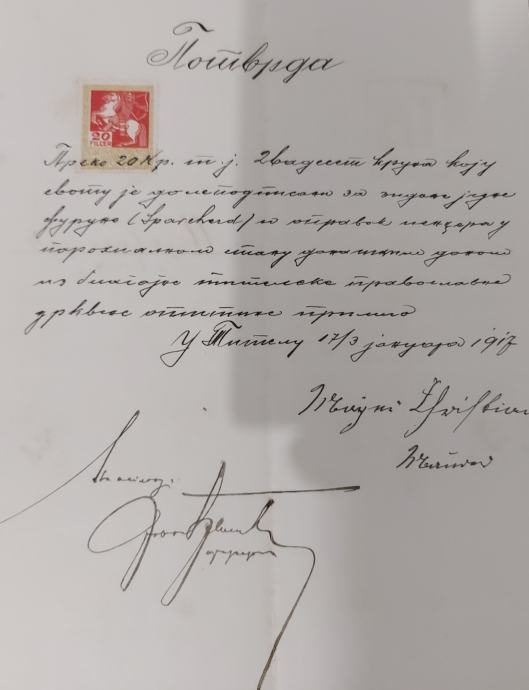 Потврда
20
FILLER
Преко 20 Кр. т. ј. Двадесет круна коју
своту је долеподписани за зидање једне
фуруне (Sparcherd) и оправак пенџера у
парохиалном стану данашњим даном
из благајне тителске православне
црквене општине примио
У Тителу 17/3 јануара 1917
Christian